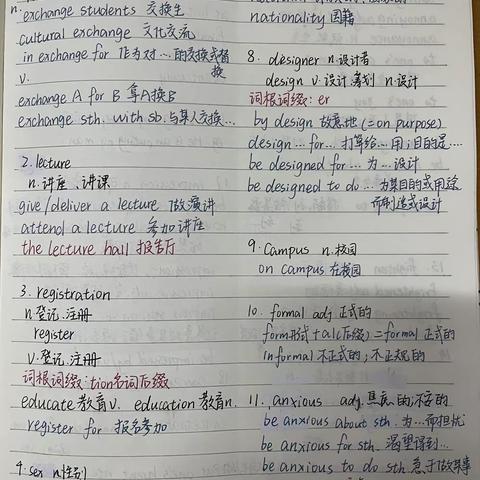 n. exchange students 交换生
cultural exchange 文化交流
in exchange for 作为对…的交换或替换
v.
exchange A for B 拿A换B
exchange sth. with sb. 与某人交换…
2. lecture
n. 讲座、讲课
give/deliver a lecture 做演讲
attend a lecture 参加讲座
the lecture hall 报告厅
3. registration
n. 登记、注册
register
v. 登记、注册
词根词缀: tion名词后缀
educate 教育v. education 教育n.
register for 报名参加
4. sex n. 性别
nationality 国籍
8. designer n. 设计者
design v. 设计、筹划 n. 设计
词根词缀: er
by design 故意地 (= on purpose)
design … for … 打算给…用；目的是…
be designed for … 为…设计
be designed to do … 为某目的或用途
而制造或设计
9. Campus n. 校园
on campus 在校园
10. formal adj. 正式的
form形式 + al(后缀) = formal 正式的
informal 不正式的；不正规的
11. anxious adj. 焦虑的;不安的
be anxious about sth. 为…而担忧
be anxious for sth. 渴望得到…
be anxious to do sth. 急于做某事